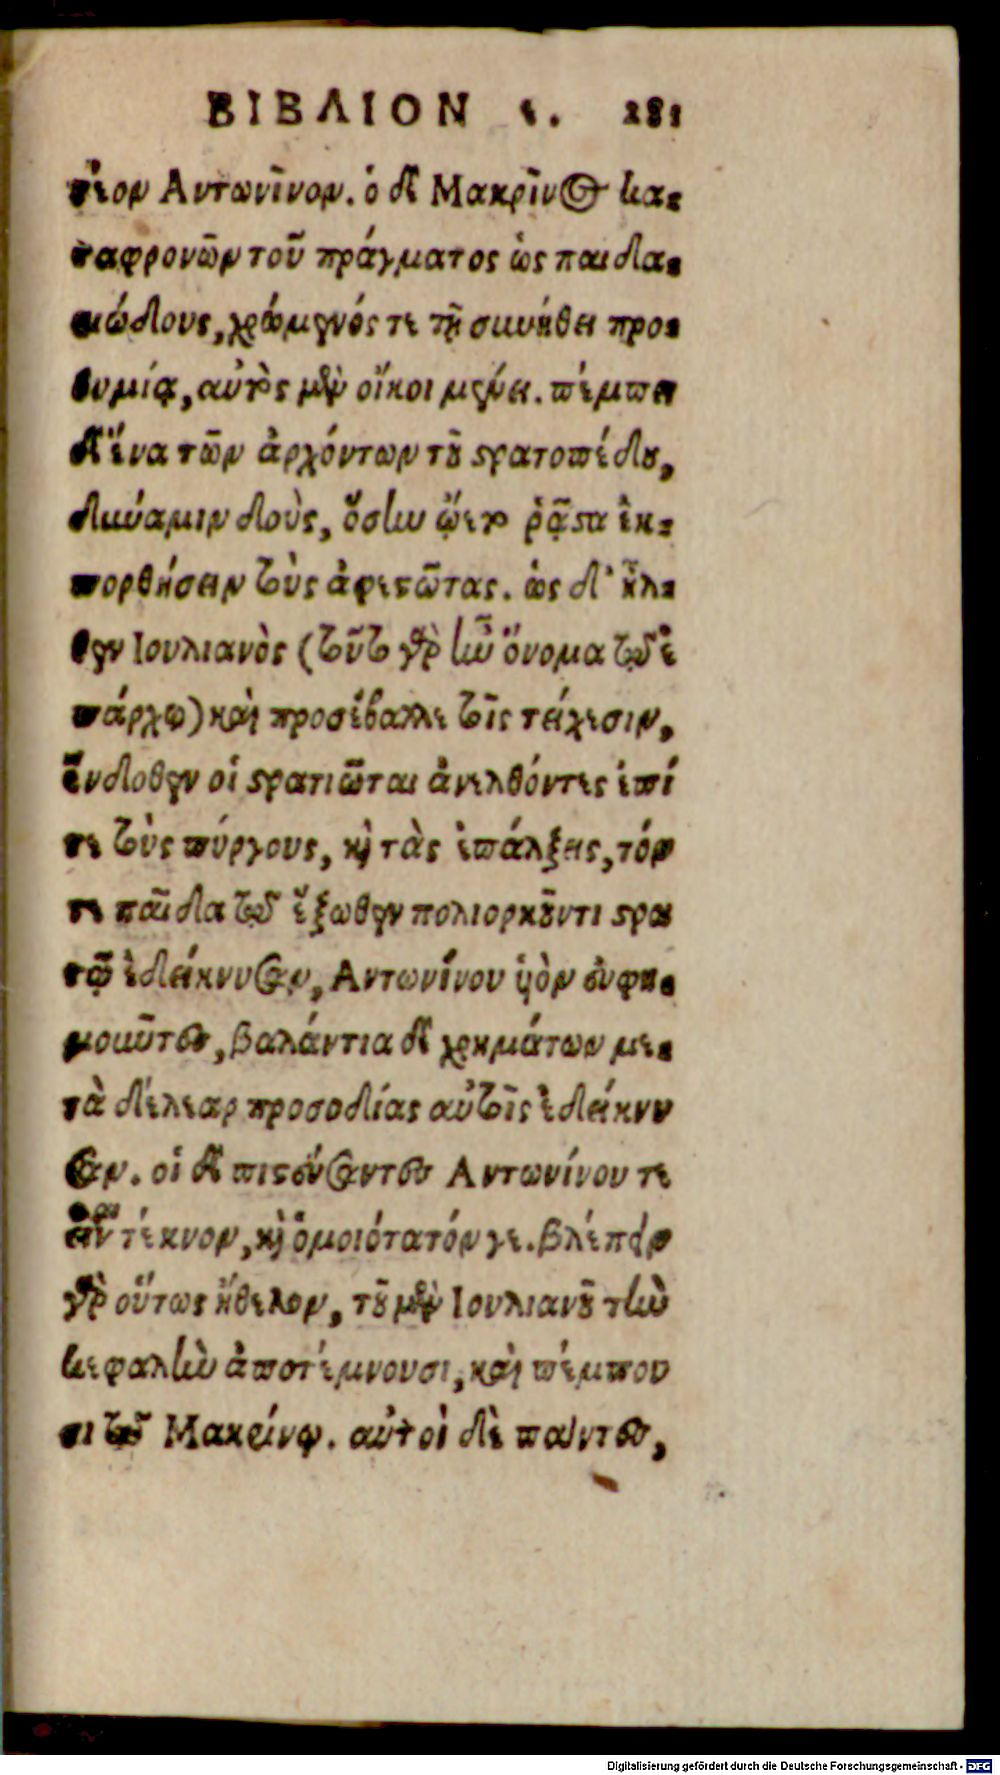 ΒΙΒΛΙΟΝ ε. 281
τεον Αντωνῖνον. ὁ δὲ Μακρῖνος κα-
ταφρονῶν τοῦ πράγματος ὡς παιδα-
ριώδους, χρώμενός τε τῇ συνήθει προ-
θυμίᾳ, αὐτὸς μὲν οἴκοι μένει. πέμπει
δὲ ἕνα τῶν ἀρχόντων τοῦ στρατοπέδου,
δύναμιν δοὺς, ὅσην ᾤετο ῥᾷστα ἐκ-
πορθήσειν τοὺς ἀφεστῶτας. ὡς δ' ἦλ-
θεν Ιουλιανὸς (τοῦτο γὰρ ἦν ὄνομα τῷ ἐ
πάρχῳ) καὶ προσέβαλλε τοῖς τείχεσιν,
ἔνδοθεν οἱ στρατιῶται ἀνελθόντες ἐπί
τε τοὺς πύργους, καὶ τὰς ἐπάλξεις, τόν
τε παῖδα τῷ ἔξωθεν πολιορκοῦντι στρα
τῷ ἐδείκνυσαν, Αντωνίνου υἱὸν εὐφη-
μοῦντες, βαλάντια δὲ χρημάτων με-
τὰ δέλεαρ προσοδίας αὐτοῖς ἐδείκνυ
σαν. οἱ δὲ πιστεύσαντες Αντωνίνου τε
εἶναι τέκνον, καὶ ὁμοιότατόν γε. βλέπειν
γὰρ οὕτως ἤθελον, τοῦ μὲν Ιουλιανοῦ τὴν
κεφαλὴν ἀποτέμνουσι, καὶ πέμπου
σι τῷ Μακρίνῳ. αὐτοὶ δὲ πάντες,
Digitalisierung gefördert durch die Deutsche Forschungsgemeinschaft - DFG